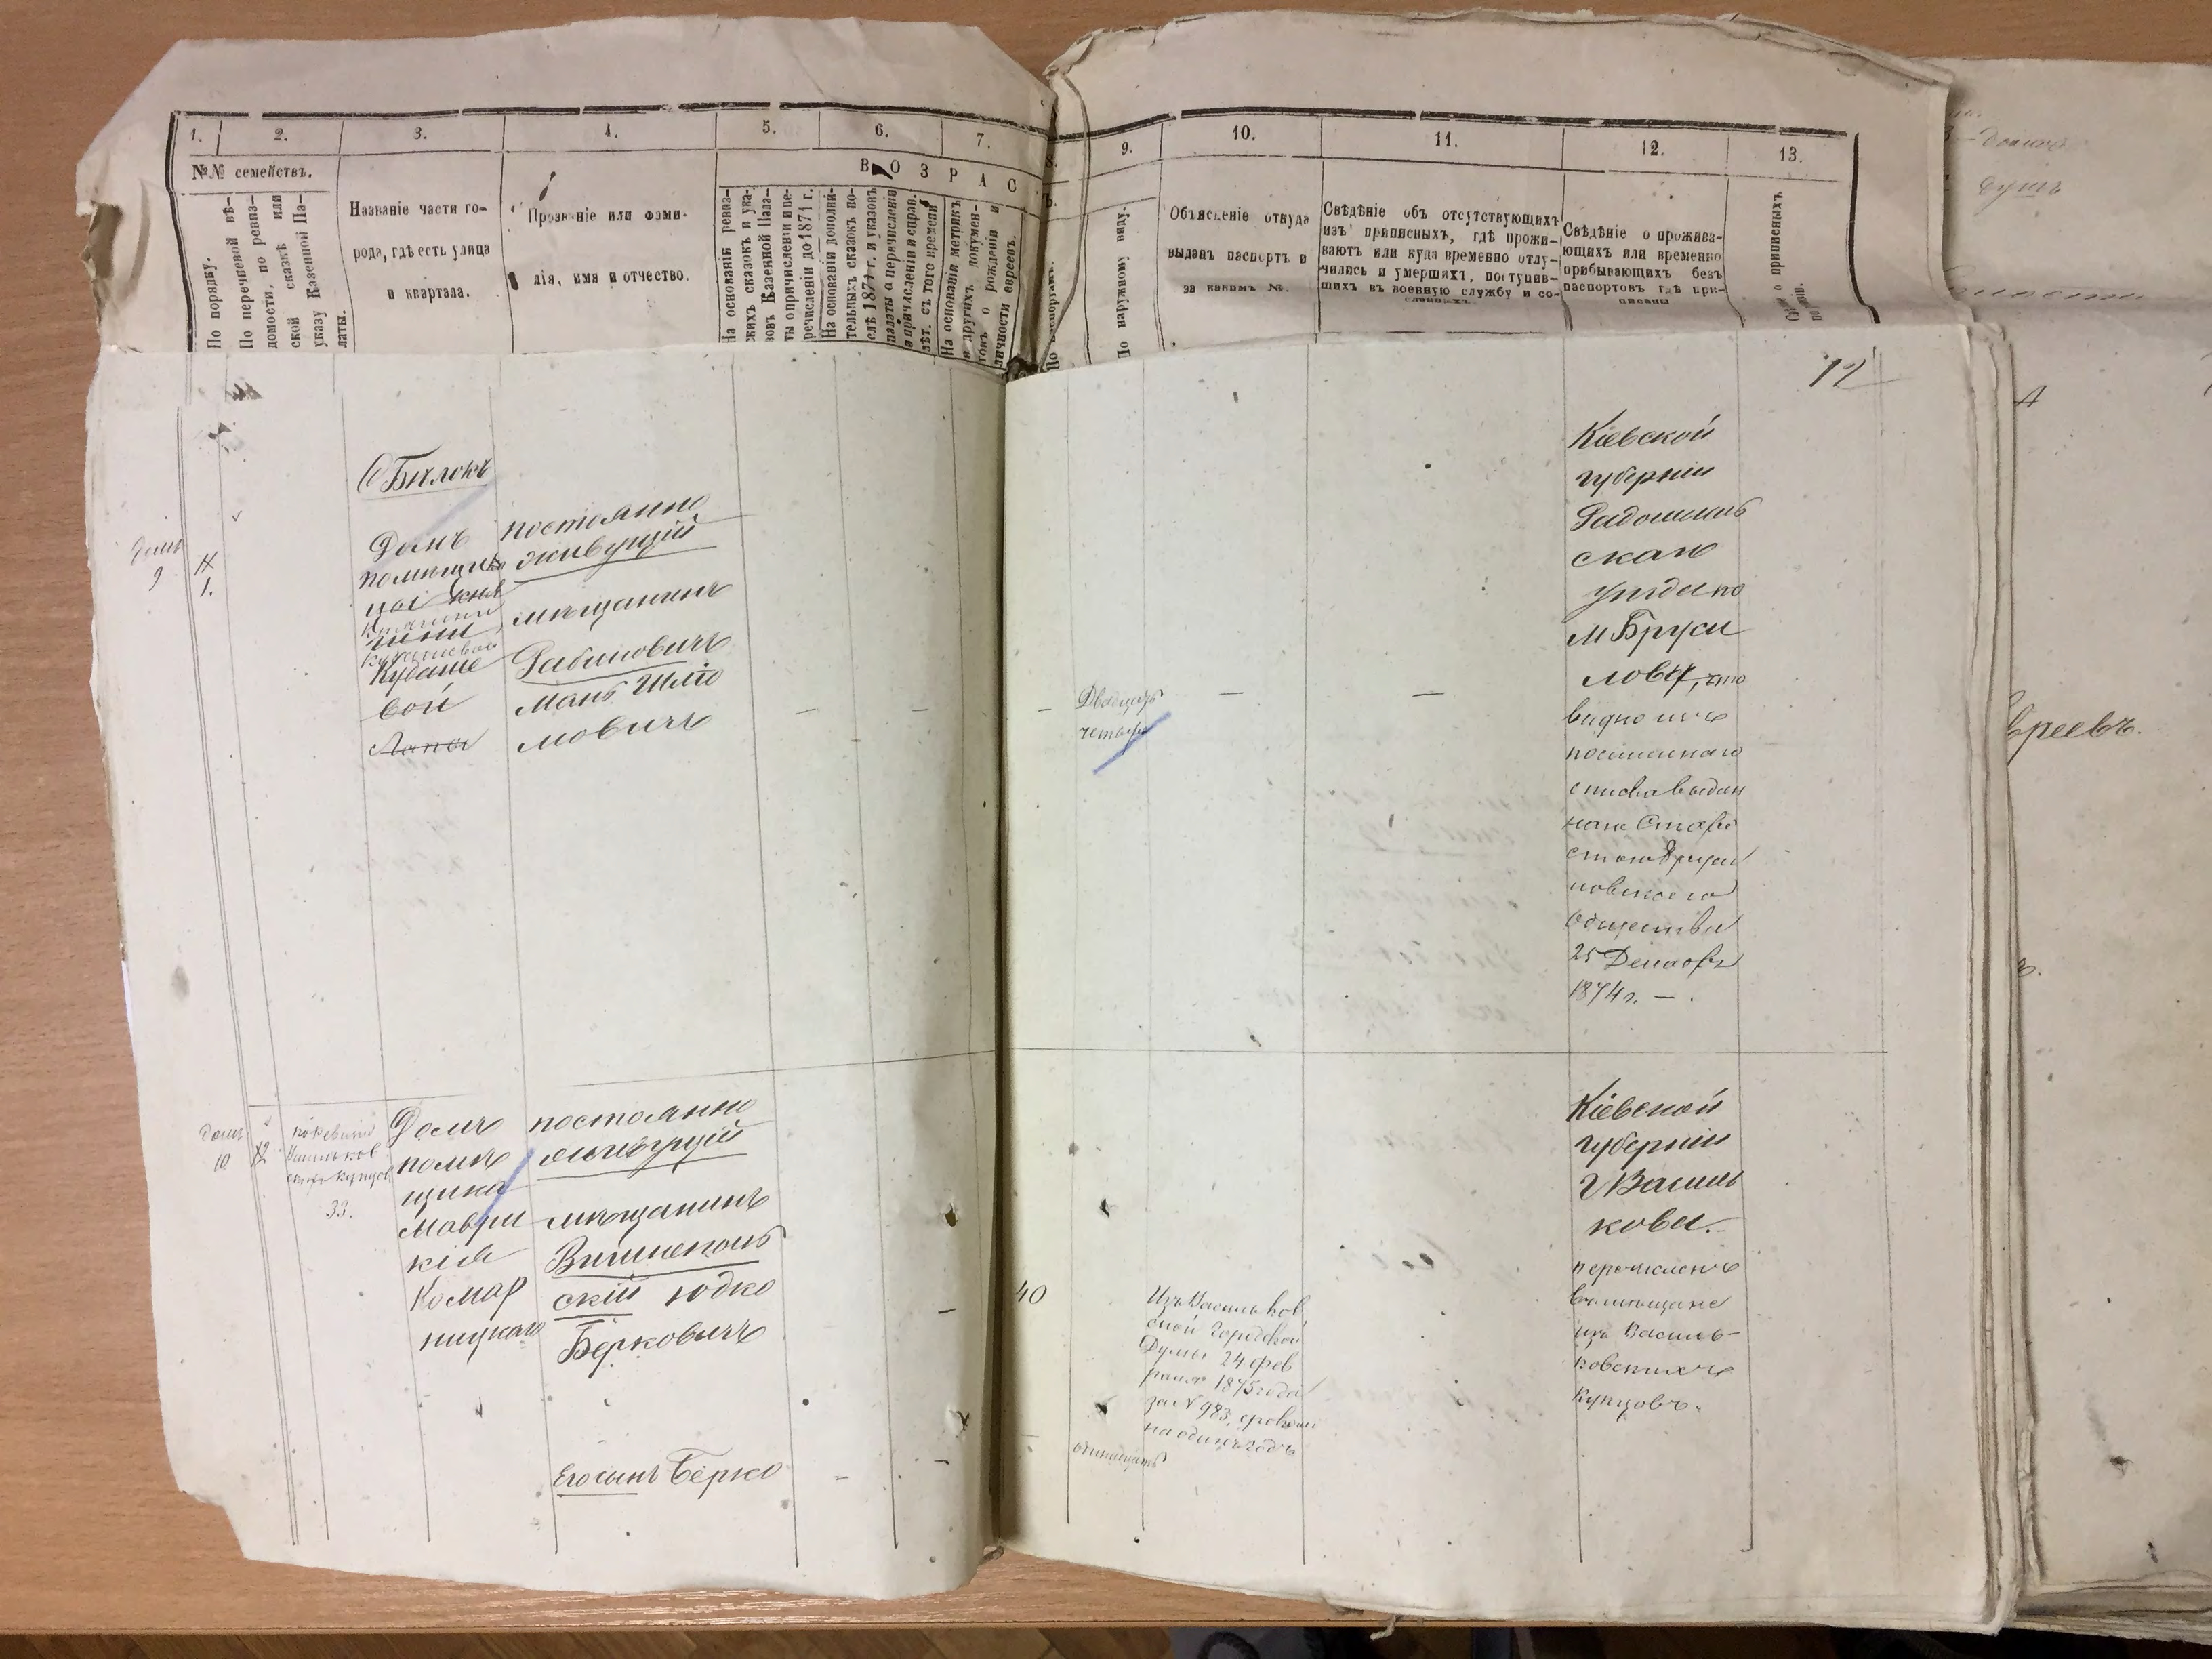 1.
2.
3.
4.
5.
6.
7.
8.
9.
10.
11.
12.
13.
№№ семействъ.
В О З Р А С
По порядку.
По перечневой вѣ-
домости, по ревиз-
ской сказкѣ или
указу Казенной Па-
латы.
Названіе части го-
рода, гдѣ есть улица
и квартала.
Прозваніе или фами-
лія, имя и отчество.
На основаніи ревиз-
скихъ сказокъ и ука-
зовъ Казенной Пала-
ты о причисленіи и пе-
речисленіи до 1871 г.
На основаніи дополни-
тельныхъ сказокъ по-
слѣ 1871 г. и указовъ
палаты о перечисленіи
и причисленіи и справ.
лѣт. съ того времени
На основаніи метрикъ
и другихъ докумен-
товъ о рожденіи и
личности евреевъ.
По наружному виду.
Объясненіе откуда
выданъ паспортъ и
за какимъ №.
Свѣдѣніе объ отсутствующихъ
изъ приписныхъ, гдѣ прожи-
ваютъ или куда временно отлу-
чились и умершихъ, поступив-
шихъ въ военную службу и со-
Свѣдѣніе о прожива-
ющихъ или временно
прибывающихъ безъ
паспортовъ гдѣ при-
писаны
о приписныхъ
12
Домъ
9
1.
Домъ
помѣщи
цы
Кудаше
вой
постоянно
живущій
мѣщанинъ
Рабиновичъ
Мань Шлио
мовичъ
Двадцать
четыре
Кіевской
губерніи
Радомысль
скаго
уѣзда по
м Бруси
лову, что
видно изъ
посемейнаго
списка выдан
наго Старо
стою Бруси
ловскаго
общества
25 Декабря
1874 г. —.
Домъ
10
12
Васильков
купцов
33.
Домъ
помѣ
щика
Маври
кія
Комар
ницкаго
постоянно
живущій
мѣщанинъ
Вишнеполь
скій Юдко
Берковичъ
Его сынъ Берко
40
одинадцать
Изъ Васильков
ской Городской
Думы 24 фев
раля 1875 года
за № 983, срокомъ
на одинъ годъ
Кіевской
губерніи
г Василь
кова.
перечисленъ
въ мѣщане
изъ Василь-
ковскихъ
купцовъ.
душъ
евреевъ.